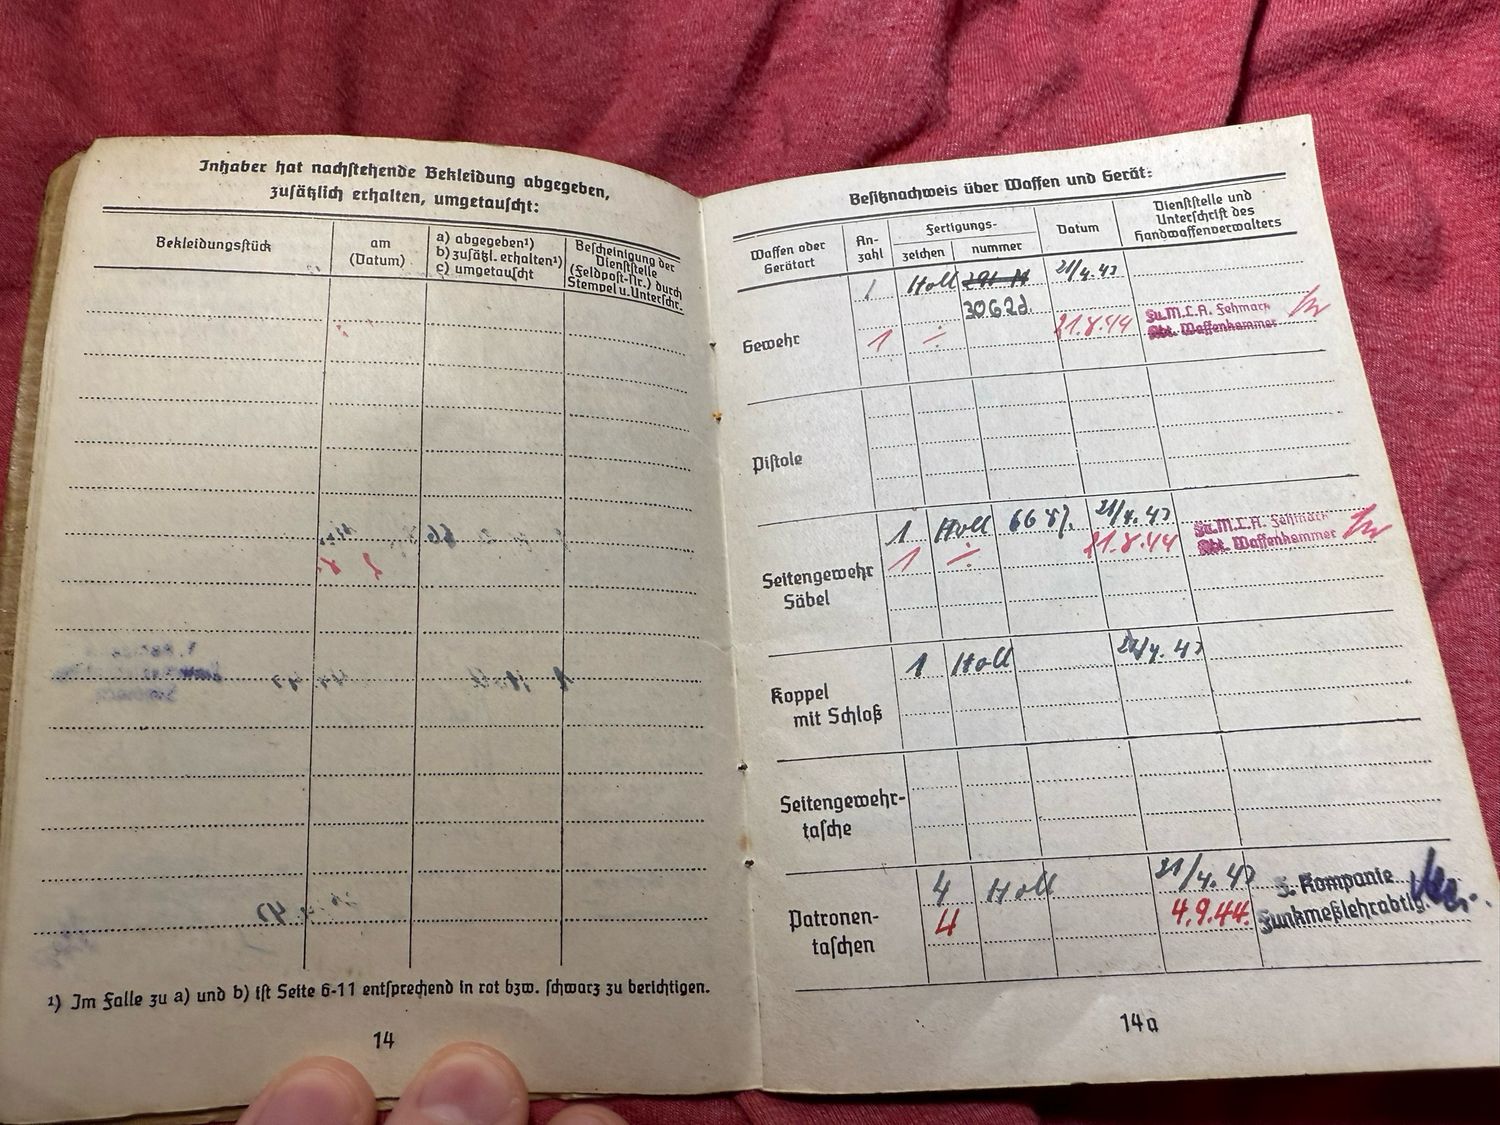 Inhaber hat nachstehende Bekleidung abgegeben,
zusätzlich erhalten, umgetauscht:
Bekleidungsstück
am
(Datum)
a) abgegeben¹)
b) zusätzl. erhalten¹)
c) umgetauscht
Bescheinigung der
Dienststelle
(Feldpost-Nr.) durch
Stempel u. Unterschr.
¹) Im Falle zu a) und b) ist Seite 6-11 entsprechend in rot bzw. schwarz zu berichtigen.
14
Besitznachweis über Waffen und Gerät:
Waffen oder
Gerätart
An-
zahl
Fertigungs-
zeichen
nummer
Datum
Dienststelle und
Unterschrift des
Handwaffenverwalters
Gewehr
1 Holl 21/4.43
3062d.
1 ÷ 21.8.44
Su.M.L.A. Fehmarn
Abt. Waffenkammer
Pistole
Seitengewehr
Säbel
1 Holl 21/4.43
1 ÷ 21.8.44
Su.M.L.A. Fehmarn
Abt. Waffenkammer
Koppel
mit Schloß
1 Holl 21/4.43
Seitengewehr-
tasche
Patronen-
taschen
4 Holl 21/4.43
4 4.9.44.
Kompanie
Funkmeßlehrabtlg.
14a